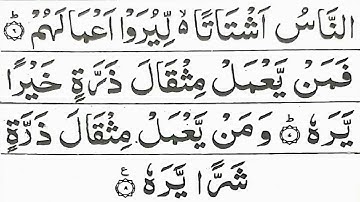 النَّاسُ اَشْتَاتًا ۙ۬ لِّيُرَوْا اَعْمَالَهُمْ ؕ۶
فَمَنْ يَّعْمَلْ مِثْقَالَ ذَرَّةٍ خَيْرًا
يَّرَهٗ ؕ۷ وَمَنْ يَّعْمَلْ مِثْقَالَ ذَرَّةٍ
شَرًّا يَّرَهٗ ۸ ع